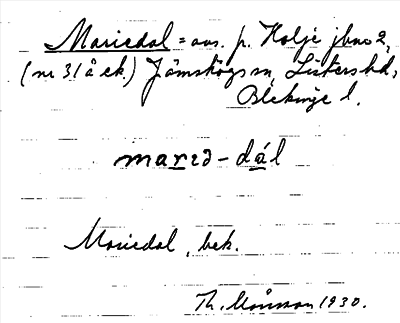 Mariedal = avs. p. Holje jbno 2,
(nr 31 å ek.) Jämshögs sn, Listers hd,
Blekinge l.
marɪə-dál
Mariedal, bek.
Th. Månsson 1930.